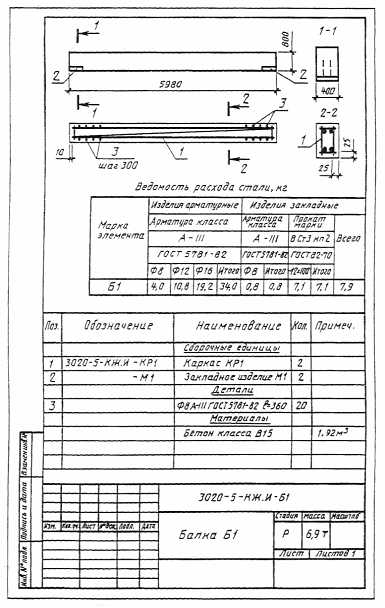 1
1-1
800
2
2
400
5980
1
2
3
2-2
1
25
10
3
шаг 300
1
2
25
Ведомость расхода стали, кг
Марка элемента
Изделия арматурные
Изделия закладные
Всего
Арматура класса
Арматура класса
Прокат марки
А-III
А-III
ВСт3 кп2
ГОСТ 5781-82
ГОСТ 5781-82
ГОСТ 82-70
Ф8 Ф12 Ф16 Итого Ф8 Итого -12×100 Итого
Б1 4,0 10,8 19,2 34,0 0,8 0,8 7,1 7,1 7,9
Поз. Обозначение Наименование Кол. Примеч.
Сборочные единицы
1 3020-5-КЖ.И -КР1 Каркас КР1 2
2 -М1 Закладное изделие М1 2
Детали
3 Ф8 А-III ГОСТ 5781-82 ℓ=360 20
Материалы
Бетон класса В15 1.92м³
3020-5-КЖ.И-Б1
Изм. Кол.уч. Лист №док. Подп. Дата
Балка Б1
Стадия Масса Масштаб
Р 6,9 т
Лист Листов 1
Взамен инв.№
Подпись и дата
Инв.№ подл.